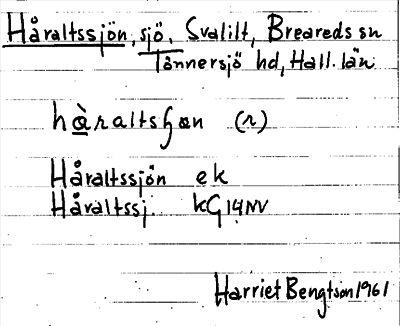 Håraltssjön, sjö, Svalilt, Breareds sn
Tönnersjö hd, Hall. län
hàraltsɧøn (r)
Håraltssjön ek
Håraltssj. kG 14NV
Harriet Bengtson 1961